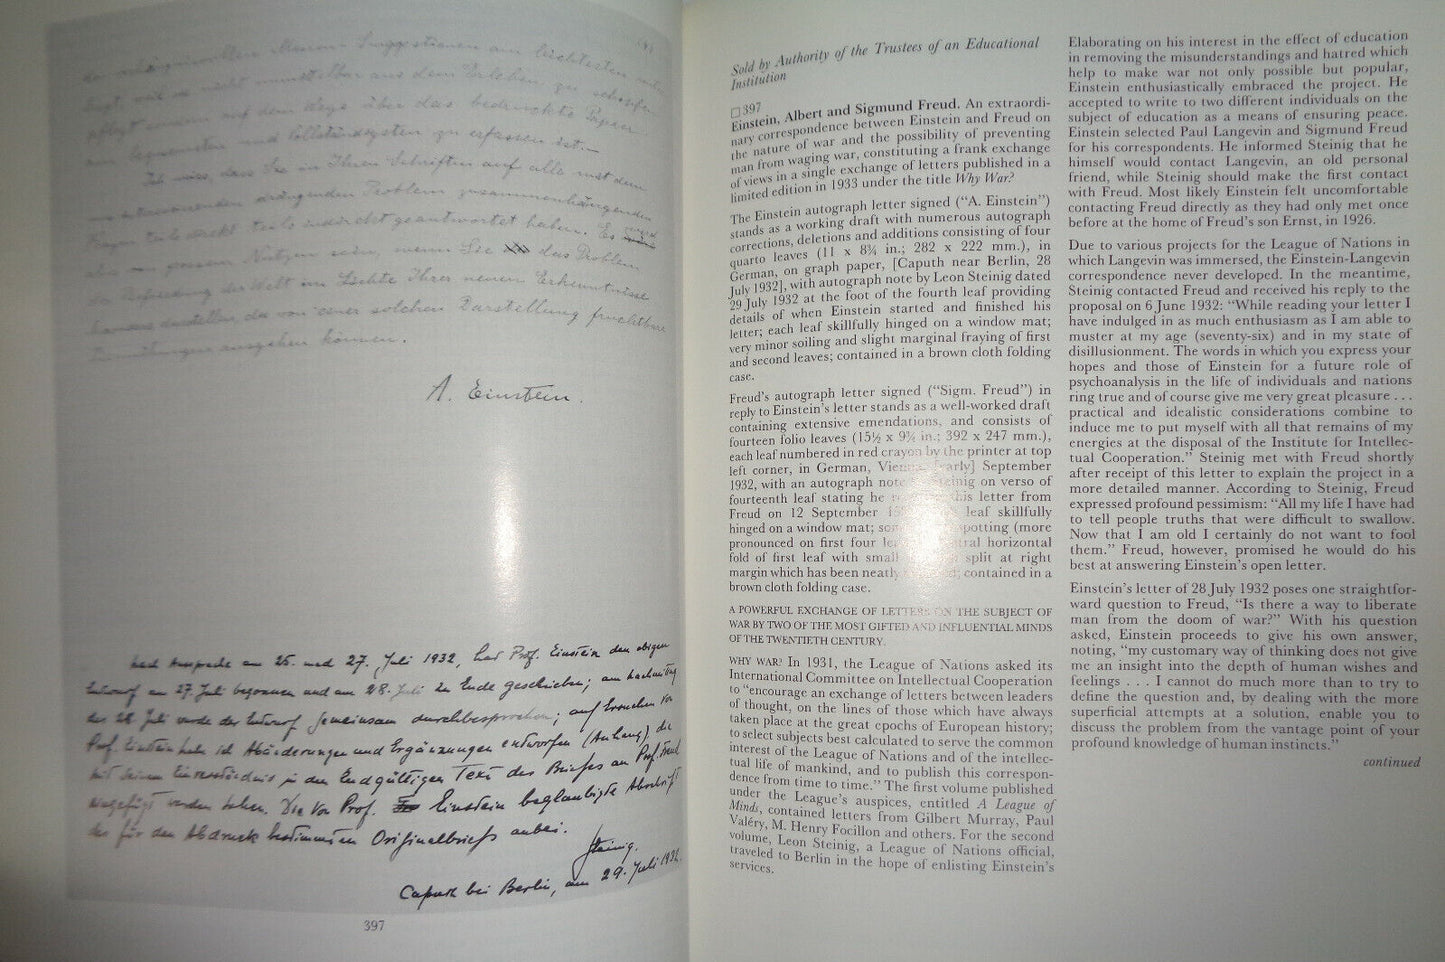 (4)
am bequemsten und vollständigsten zu erfassen ist.—
Ich weiss, dass Sie in Ihren Schriften auf alle mit dem
uns interessierenden drängenden Problem zusammenhängenden
Fragen teils direkt teils indirekt geantwortet haben. Es wird
aber von grossem Nutzen sein, wenn Sie das Problem
der Befriedung der Welt im Lichte Ihrer neuen Erkenntnisse
besonders darstellen, da von einer solchen Darstellung fruchtbare
Bemühungen ausgehen können.
A. Einstein.
Nach Aussprache am 26. und 27. Juli 1932, hat Prof. Einstein den obigen
Entwurf am 27. Juli begonnen und am 28. Juli zu Ende geschrieben; am Nachmittag
des 28. Juli wurde der Entwurf gemeinsam durchbesprochen; auf Ersuchen von
Prof. Einstein habe ich Abänderungen und Ergänzungen entworfen (Anhang) die
mit seinem Einverständnis in den Endgültigen Text des Briefes an Prof. Freud
eingefügt worden sind. Die von Prof. Einstein beglaubigte Abschrift
des für den Abdruck bestimmten Originalbriefs anbei.
Steinig.
Caputh bei Berlin, am 29. Juli 1932
397
Sold by Authority of the Trustees of an Educational
Institution
□ 397
Einstein, Albert and Sigmund Freud. An extraordi-
nary correspondence between Einstein and Freud on
the nature of war and the possibility of preventing
man from waging war, constituting a frank exchange
of views in a single exchange of letters published in a
limited edition in 1933 under the title Why War?
The Einstein autograph letter signed (“A. Einstein”)
stands as a working draft with numerous autograph
corrections, deletions and additions consisting of four
quarto leaves (11 x 8¾ in.; 282 x 222 mm.), in
German, on graph paper, [Caputh near Berlin, 28
July 1932], with autograph note by Leon Steinig dated
29 July 1932 at the foot of the fourth leaf providing
details of when Einstein started and finished his
letter; each leaf skillfully hinged on a window mat;
very minor soiling and slight marginal fraying of first
and second leaves; contained in a brown cloth folding
case.
Freud’s autograph letter signed (“Sigm. Freud”) in
reply to Einstein’s letter stands as a well-worked draft
containing extensive emendations, and consists of
fourteen folio leaves (15½ x 9¾ in.; 392 x 247 mm.),
each leaf numbered in red crayon by the printer at top
left corner, in German, Vienna [early] September
1932, with an autograph note Steinig on verso of
fourteenth leaf stating he this letter from
Freud on 12 September leaf skillfully
hinged on a window mat; spotting (more
pronounced on first four horizontal
fold of first leaf with small split at right
margin which has been neatly contained in a
brown cloth folding case.
A POWERFUL EXCHANGE OF LETTERS ON THE SUBJECT OF
WAR BY TWO OF THE MOST GIFTED AND INFLUENTIAL MINDS
OF THE TWENTIETH CENTURY.
WHY WAR? In 1931, the League of Nations asked its
International Committee on Intellectual Cooperation
to “encourage an exchange of letters between leaders
of thought, on the lines of those which have always
taken place at the great epochs of European history;
to select subjects best calculated to serve the common
interest of the League of Nations and of the intellec-
tual life of mankind, and to publish this correspon-
dence from time to time.” The first volume published
under the League’s auspices, entitled A League of
Minds, contained letters from Gilbert Murray, Paul
Valéry, M. Henry Focillon and others. For the second
volume, Leon Steinig, a League of Nations official,
traveled to Berlin in the hope of enlisting Einstein’s
services.
Elaborating on his interest in the effect of education
in removing the misunderstandings and hatred which
help to make war not only possible but popular,
Einstein enthusiastically embraced the project. He
accepted to write to two different individuals on the
subject of education as a means of ensuring peace.
Einstein selected Paul Langevin and Sigmund Freud
for his correspondents. He informed Steinig that he
himself would contact Langevin, an old personal
friend, while Steinig should make the first contact
with Freud. Most likely Einstein felt uncomfortable
contacting Freud directly as they had only met once
before at the home of Freud’s son Ernst, in 1926.
Due to various projects for the League of Nations in
which Langevin was immersed, the Einstein-Langevin
correspondence never developed. In the meantime,
Steinig contacted Freud and received his reply to the
proposal on 6 June 1932: “While reading your letter I
have indulged in as much enthusiasm as I am able to
muster at my age (seventy-six) and in my state of
disillusionment. The words in which you express your
hopes and those of Einstein for a future role of
psychoanalysis in the life of individuals and nations
ring true and of course give me very great pleasure . . .
practical and idealistic considerations combine to
induce me to put myself with all that remains of my
energies at the disposal of the Institute for Intellec-
tual Cooperation.” Steinig met with Freud shortly
after receipt of this letter to explain the project in a
more detailed manner. According to Steinig, Freud
expressed profound pessimism: “All my life I have had
to tell people truths that were difficult to swallow.
Now that I am old I certainly do not want to fool
them.” Freud, however, promised he would do his
best at answering Einstein’s open letter.
Einstein’s letter of 28 July 1932 poses one straightfor-
ward question to Freud, “Is there a way to liberate
man from the doom of war?” With his question
asked, Einstein proceeds to give his own answer,
noting, “my customary way of thinking does not give
me an insight into the depth of human wishes and
feelings . . . I cannot do much more than to try to
define the question and, by dealing with the more
superficial attempts at a solution, enable you to
discuss the problem from the vantage point of your
profound knowledge of human instincts.”
continued